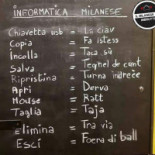 INFORMATICA MILANESE
Chiavetta usb = La ciav
Copia = Fa istess
Incolla = Taca sü
Salva = Tegnel de cunt
Ripristina = Turna indrèe
Apri = Derva
Mouse = Ratt
Taglia = Taja
Elimina = Tra via
Esci = Foera di ball